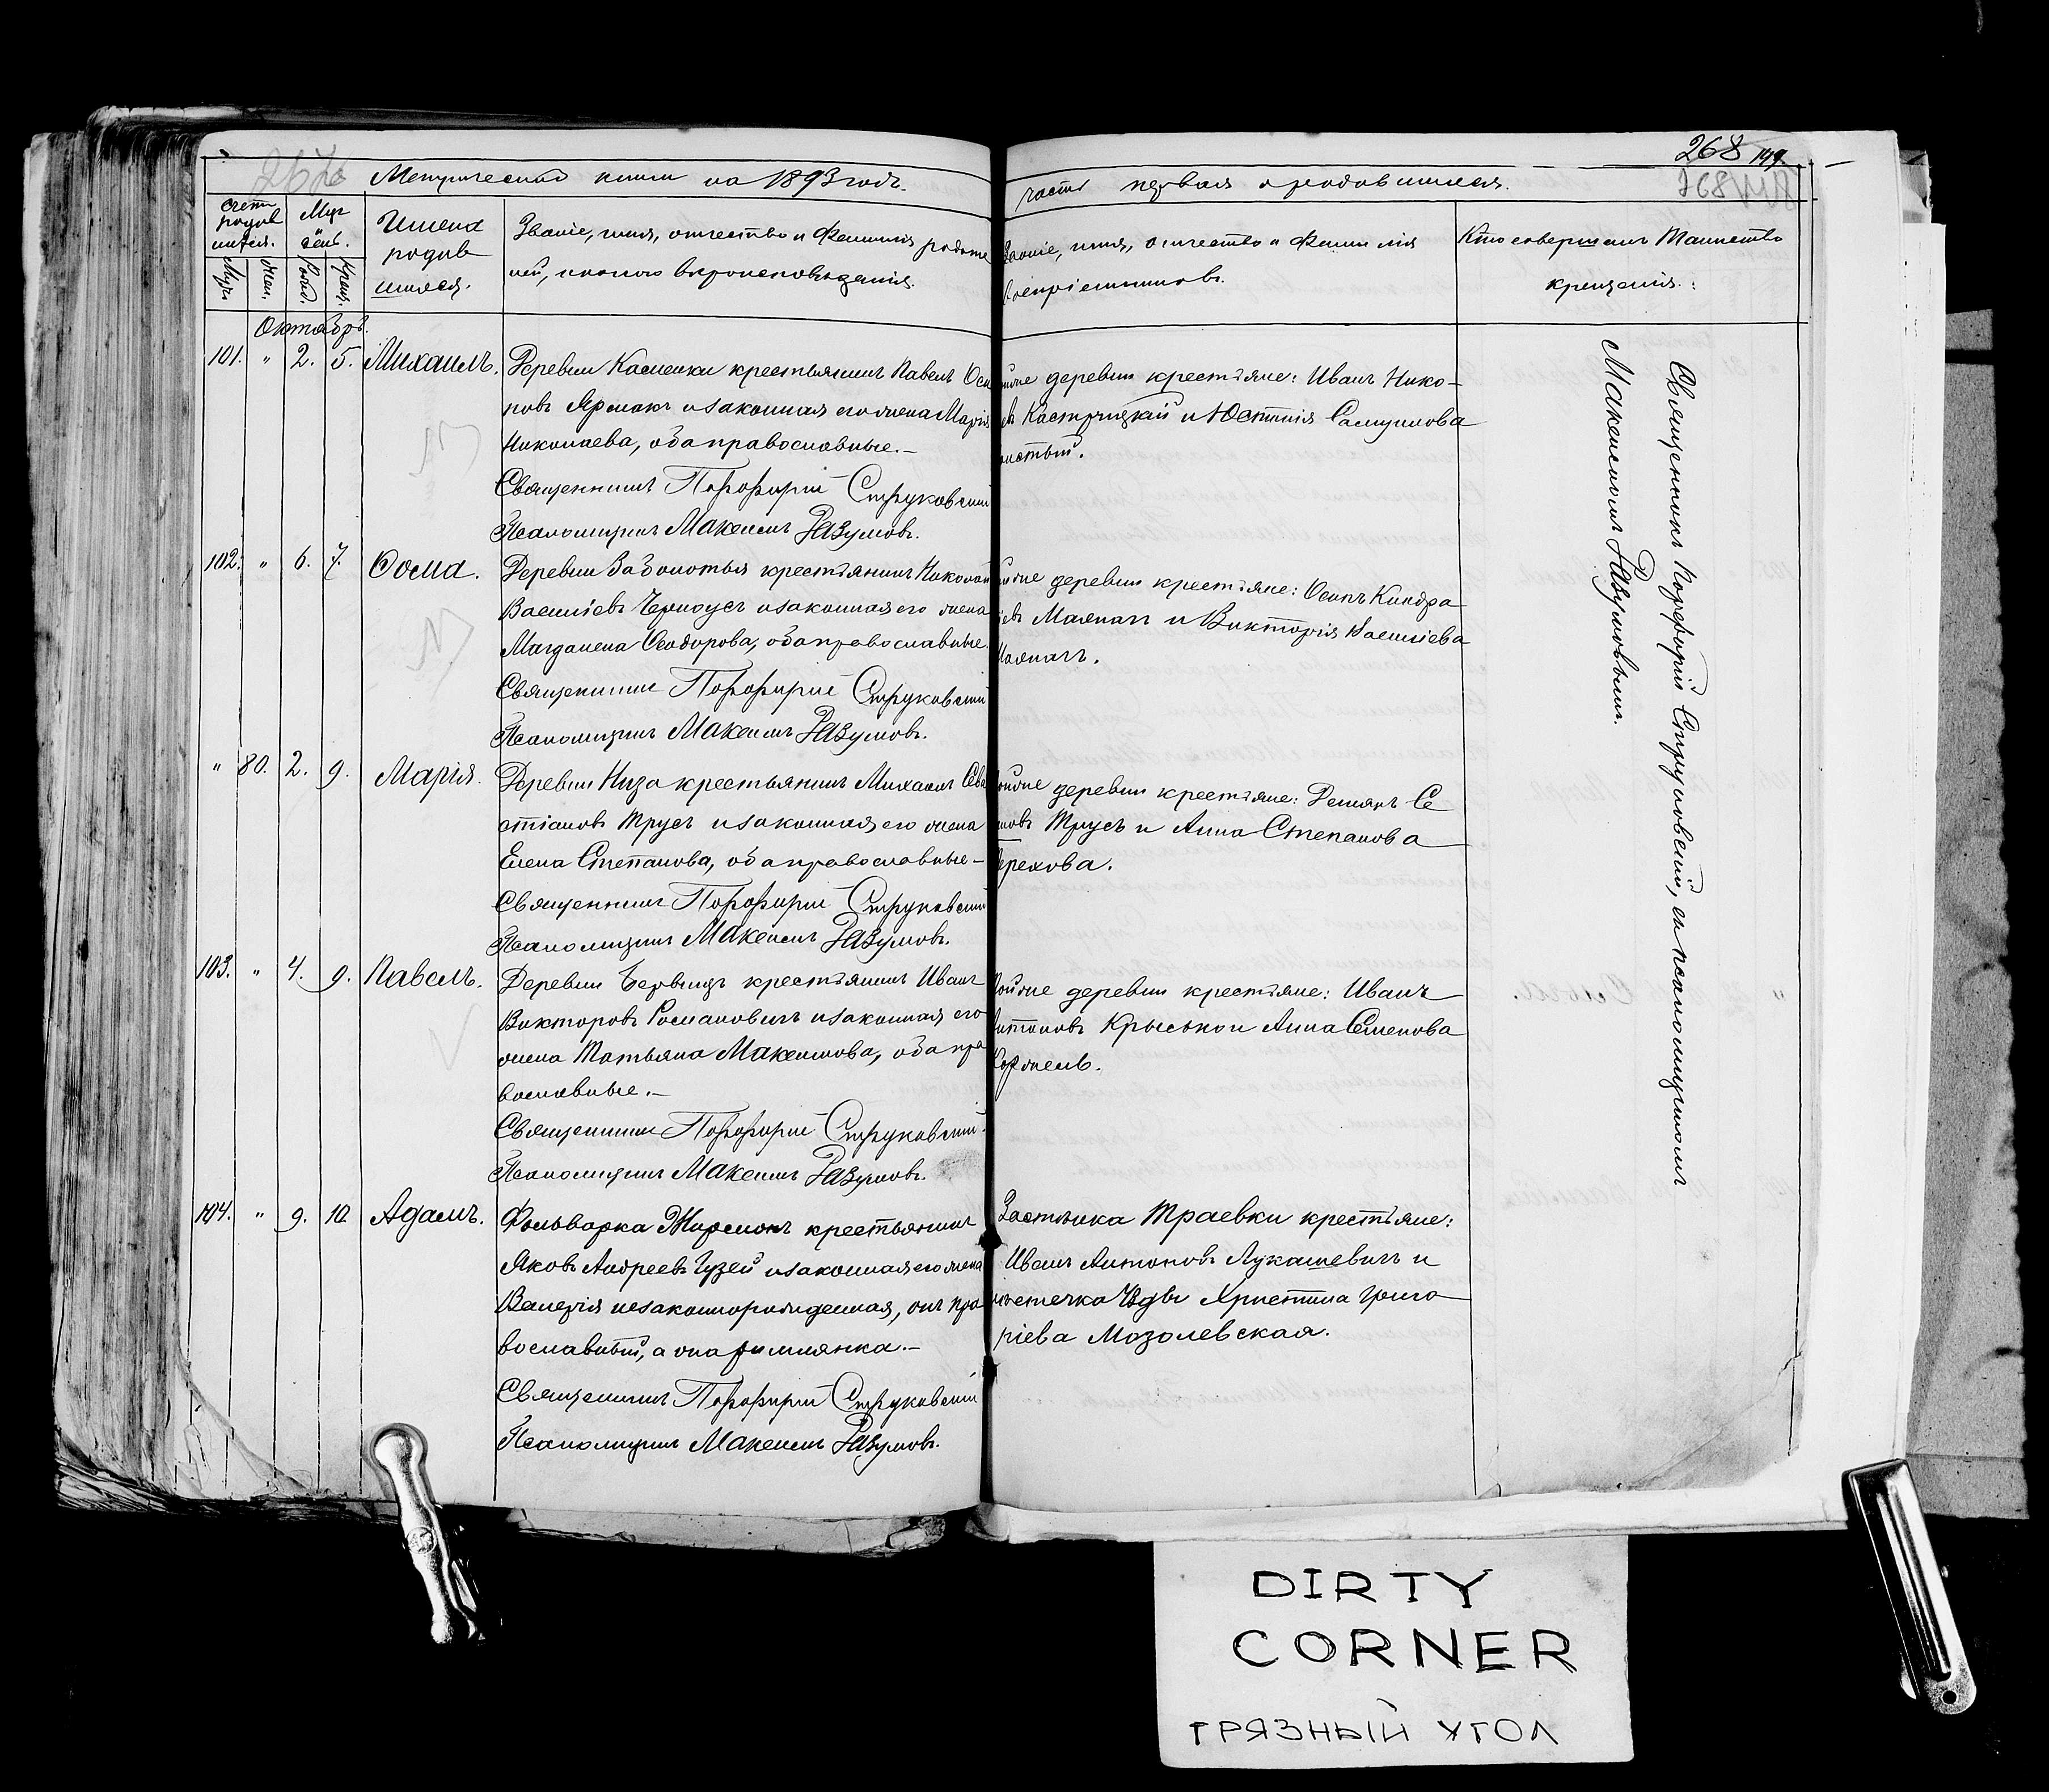 268 149.
Метрической книги на 1893 годъ.
часть первая о родившихся.
Счетъ родив шихся.
Мѣс день.
Имена родив шихся.
Званіе, имя, отчество и фамилія родите
лей, и какого вѣроисповѣданія.
Званіе, имя, отчество и фамилія
воспріемниковъ.
Кто совершалъ Таинство
крещенія.
Муж. Жен. Рожд. Крещ.
Октябрь.
101. " 2. 5. Михаилъ.
Деревни Каменки крестьянинъ Павелъ Оси
повъ Ярмакъ и законная его жена Марія
Николаева, оба православные.—
Священникъ Порфирій Струковскій
Псаломщикъ Максимъ Разумовъ.
деревни крестьяне: Иванъ Нико-
Кастрицкій и Юстинія Самуилова
102. " 6. 7. Ѳома.
Деревни Заболотья крестьянинъ Николай
Васильевъ Черноусъ и законная его жена
Магдалена Ѳеодорова, оба православные.
Священникъ Порфирій Струковскій
Псаломщикъ Максимъ Разумовъ.
деревни крестьяне: Осипъ Киндра
Маянакъ и Викторія Васильева
" 80. 2. 9. Марія.
Деревни Низа крестьянинъ Михаилъ Сева
стіановъ Трусъ и законная его жена
Елена Степанова, оба православные—
Священникъ Порфирій Струковскій
Псаломщикъ Максимъ Разумовъ.
деревни крестьяне: Демянъ Се
Трусъ и Анна Степанова
103. " 4. 9. Павелъ.
Деревни крестьянинъ Иванъ
Викторовъ Романовичъ и законная его
жена Татьяна Максимова, оба пра
вославные.—
Священникъ Порфирій Струковскій.
Псаломщикъ Максимъ Разумовъ.
деревни крестьяне: Иванъ
Антоновъ Крысько и Анна Семенова
104. " 9. 10. Адамъ.
Фольварка крестьянинъ
Яковъ Андреевъ Гузей и законная его жена
Валерія незаконнорожденная, онъ пра
вославный, а она римлянка.—
Священникъ Порфирій Струковскій
Псаломщикъ Максимъ Разумовъ.
Застѣнка Траевки крестьяне:
Иванъ Антоновъ Лукашевичъ и
мѣстечка Христина Григо
ріева Мозолевская.
Священникъ Порфирій Струковскій, съ псаломщикомъ
Максимомъ Разумовымъ.
DIRTY
CORNER
ГРЯЗНЫЙ УГОЛ